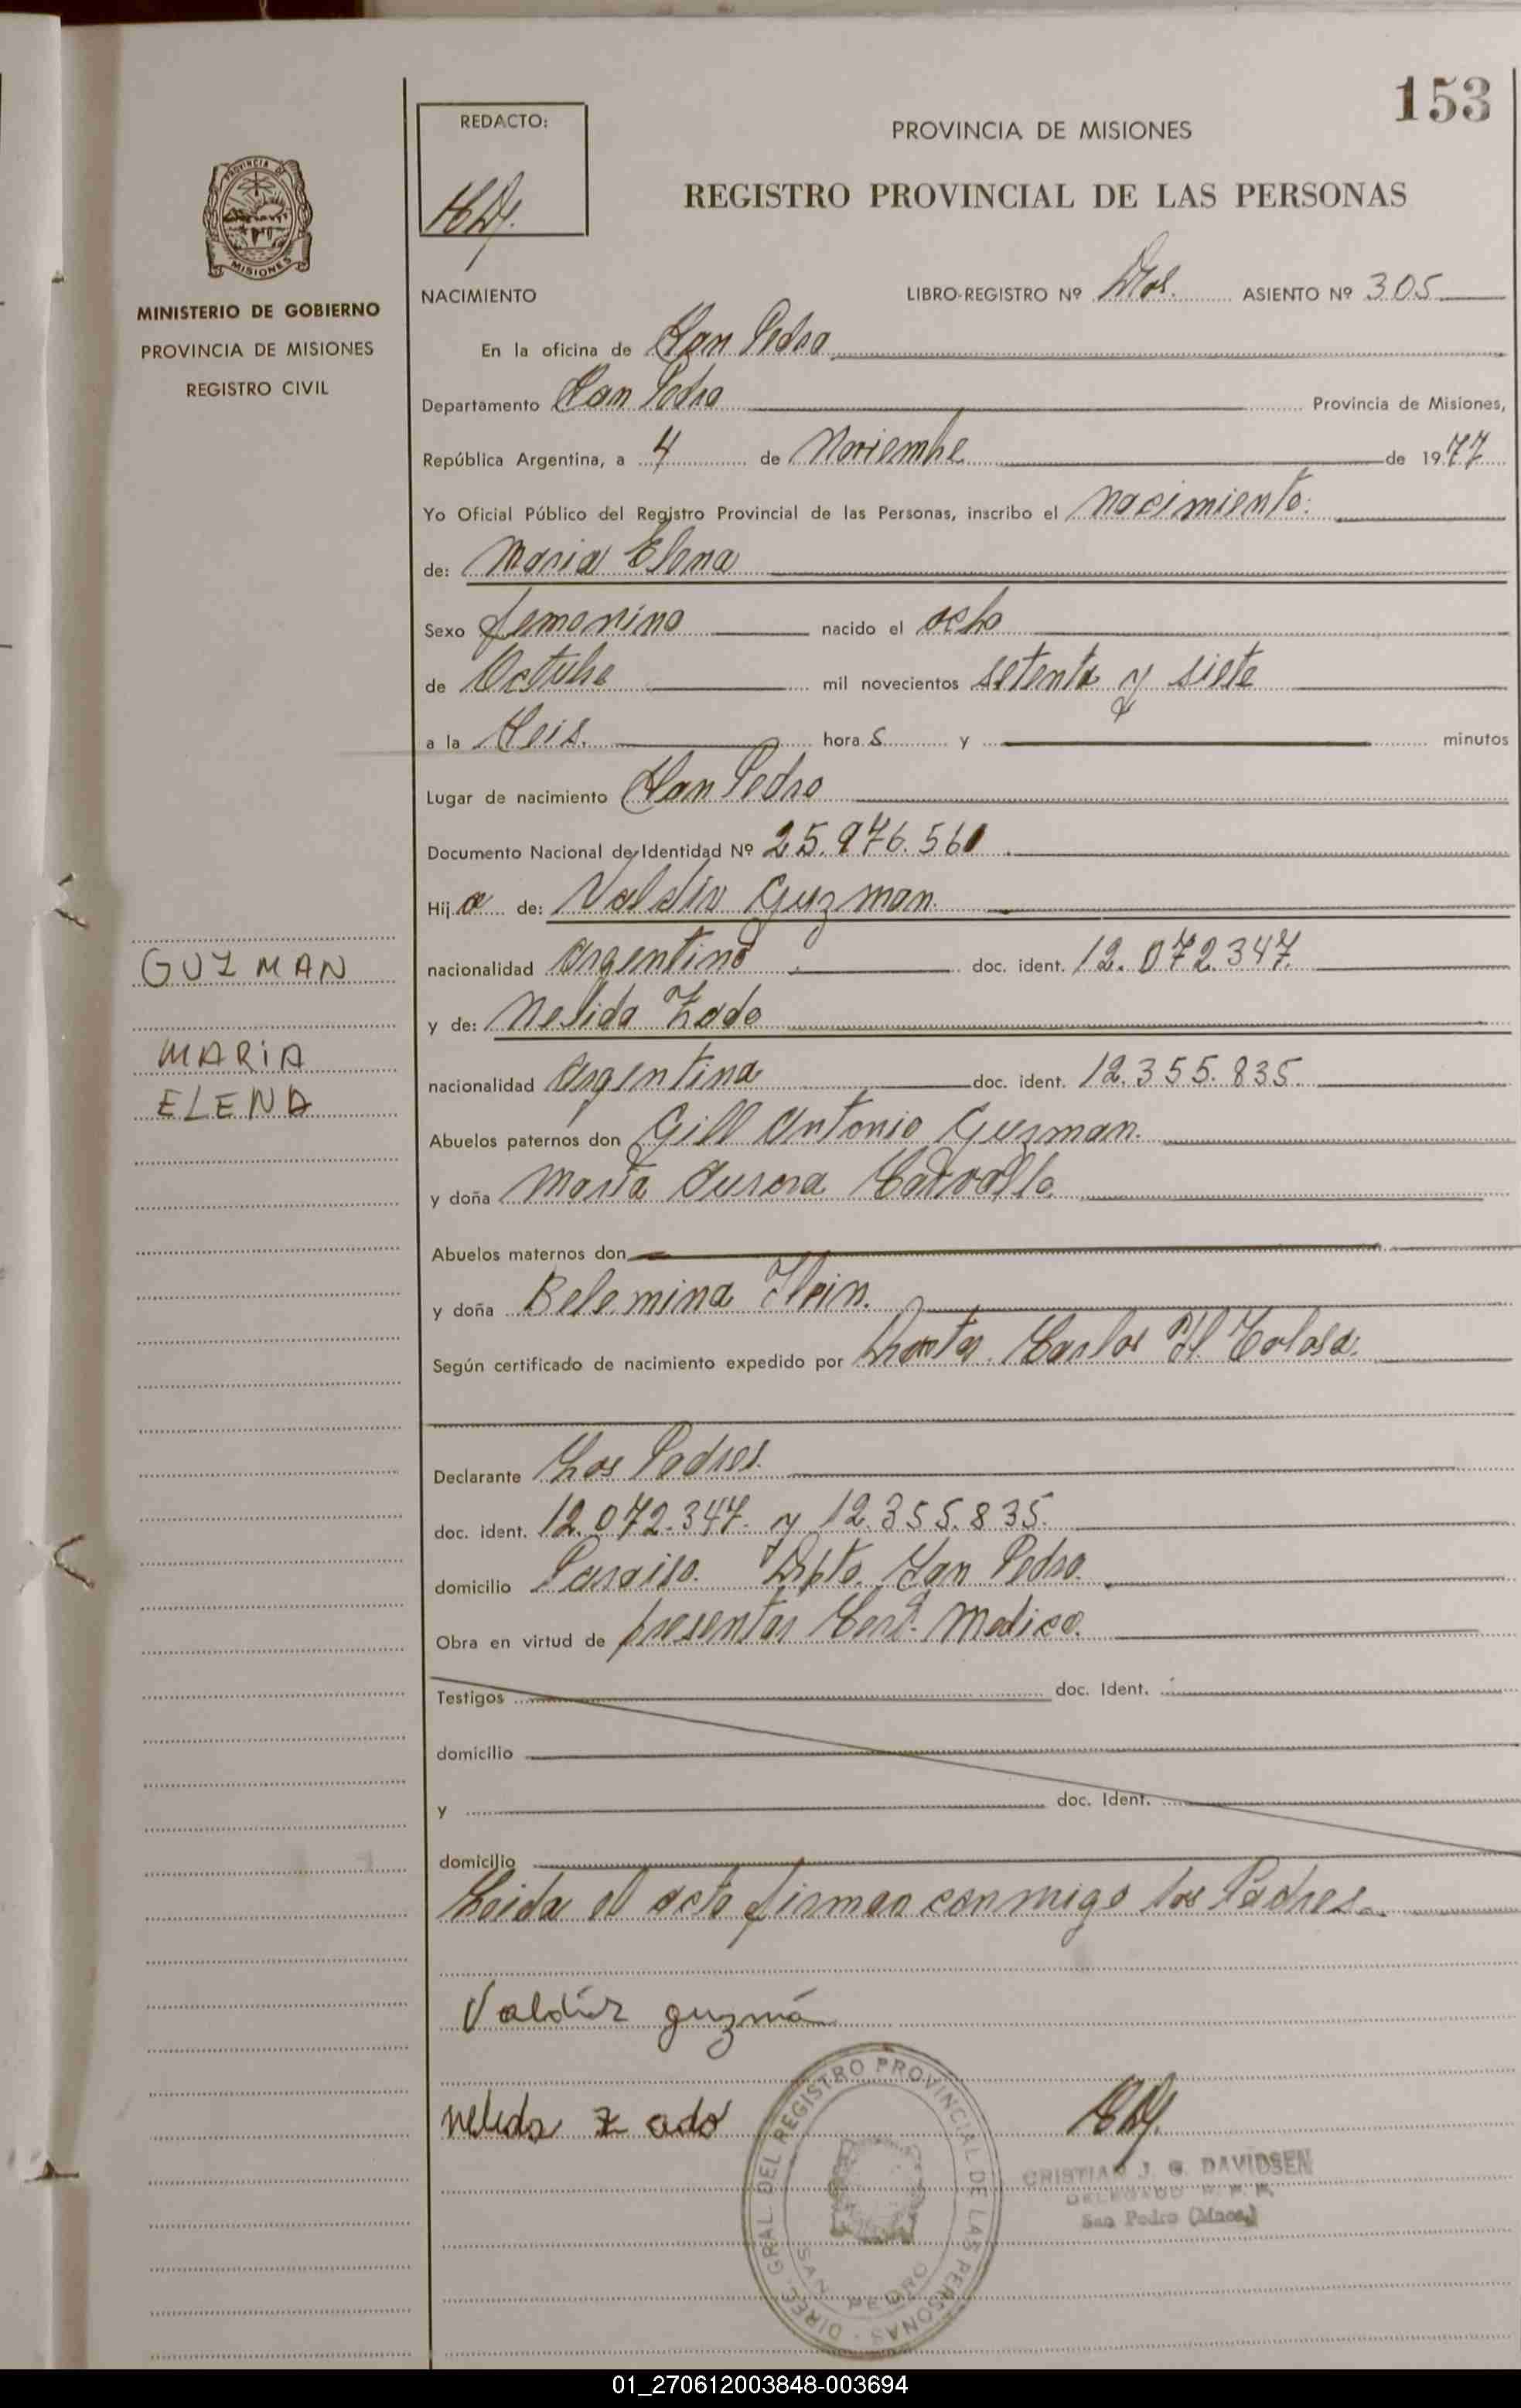 153
REDACTO:
PROVINCIA DE MISIONES
REGISTRO PROVINCIAL DE LAS PERSONAS
PROVINCIA DE
MISIONES
MINISTERIO DE GOBIERNO
PROVINCIA DE MISIONES
REGISTRO CIVIL
NACIMIENTO LIBRO-REGISTRO Nº Dos. ASIENTO Nº 305
En la oficina de San Pedro
Departamento San Pedro Provincia de Misiones,
República Argentina, a 4 de Noviembre de 1977
Yo Oficial Público del Registro Provincial de las Personas, inscribo el nacimiento:
de: Maria Elena
Sexo femenino nacido el ocho
de Octubre mil novecientos setenta y siete
a la Seis. hora s y minutos
Lugar de nacimiento San Pedro
Documento Nacional de Identidad Nº 25.976.561
Hij a de: Valdir Guzman.
nacionalidad Argentino doc. ident. 12.072.347
y de: Nelida Zado
nacionalidad Argentina doc. ident. 12.355.835.
GUZMAN
MARIA
ELENA
Abuelos paternos don Gill Antonio Guzman.
y doña Maria Aurora Carvallo
Abuelos maternos don
y doña Belemina
Según certificado de nacimiento expedido por Carlos H
Declarante Los Padres.
doc. ident. 12.072.347. y 12.355.835.
domicilio Paraiso. Dpto. San Pedro.
Obra en virtud de presentar Cert. Medico.
Testigos doc. Ident.
domicilio
y doc. Ident.
domicilio
Leida el acta firman conmigo los Padres.
Valdir guzmá
nelida z ado
DIREC. GRAL. DEL REGISTRO PROVINCIAL DE LAS PERSONAS
SAN PEDRO
CRISTIAN J. G. DAVIDSEN
DELEGADO R. P. P.
San Pedro (Mnes.)
01_270612003848-003694